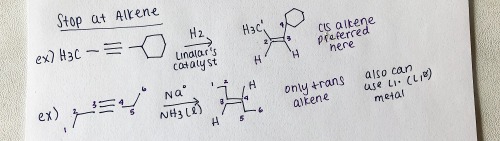 Stop at Alkene
ex) H3C H2 Lindlar's catalyst H3C 1 2 3 4 H H cis alkene preferred here
ex) 1 2 3 4 5 6 Na° NH3 (l) 1 2 3 4 5 6 H H only trans alkene also can use Li· metal